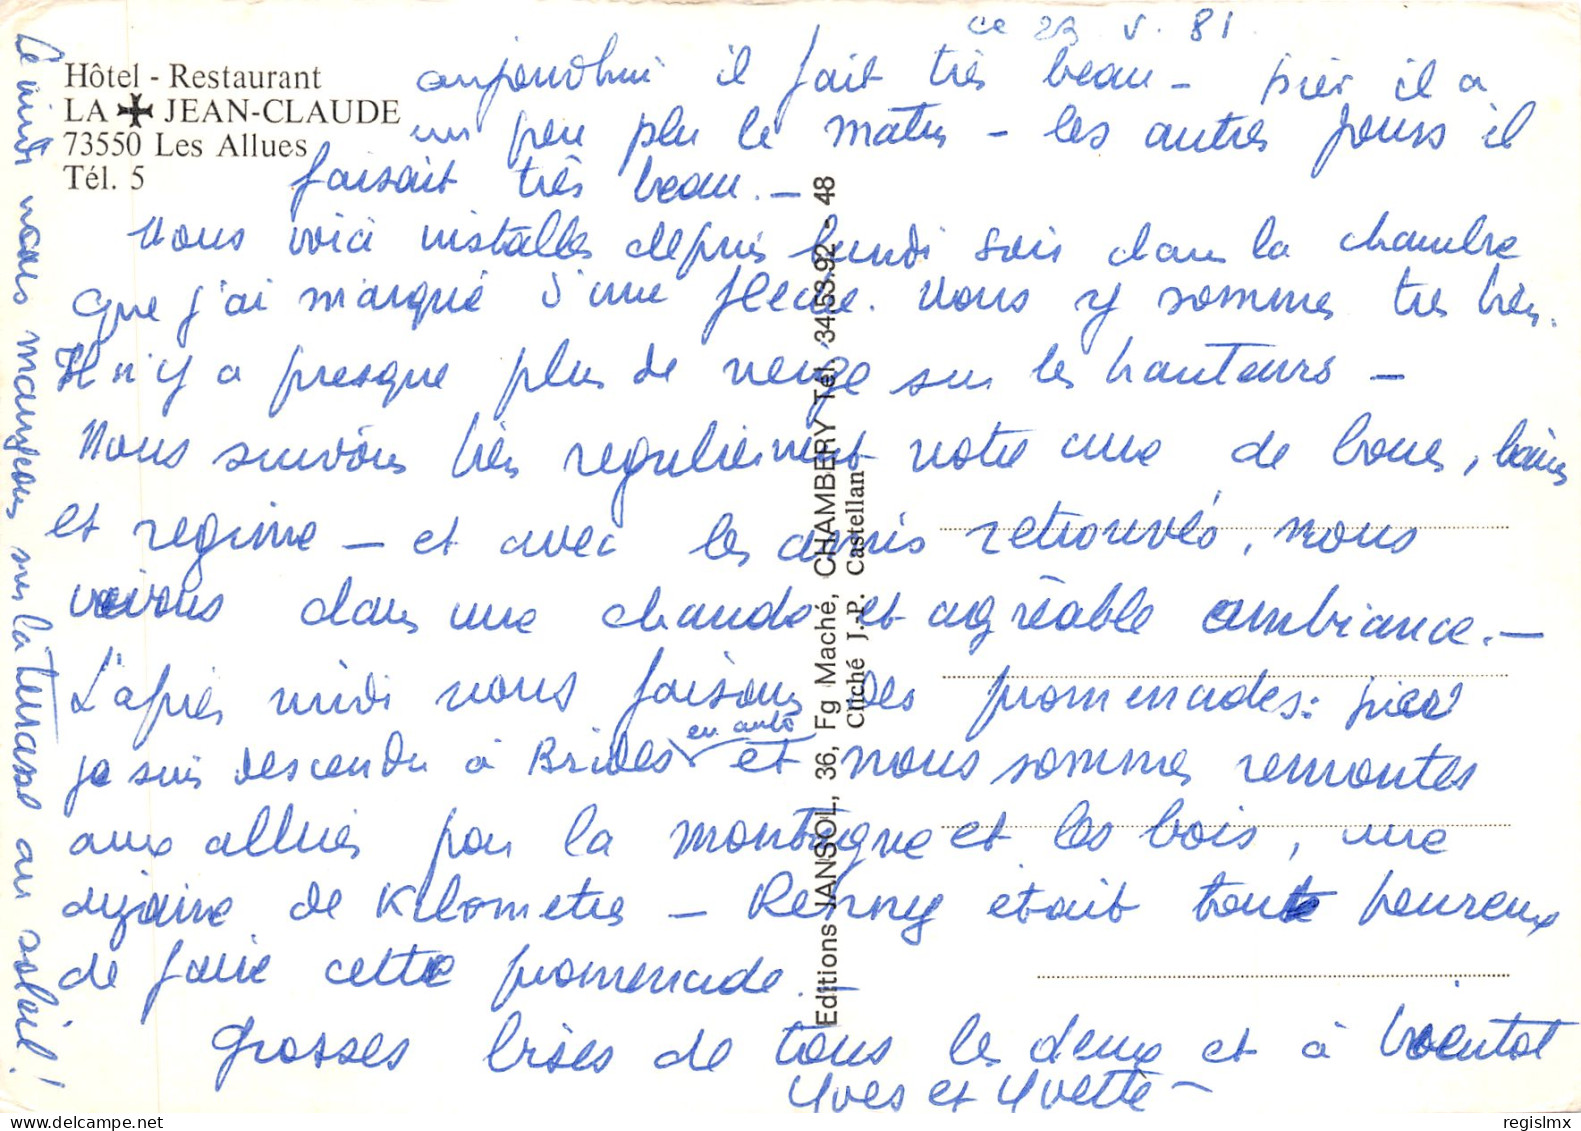 ce 23 V. 81
Hôtel - Restaurant
LA JEAN-CLAUDE
73550 Les Allues
Tél. 5
aujourd'hui il fait très beau - hier il a
un peu plu le matin - les autres jours il
faisait très beau. -
Nous voici installés depuis lundi soir dans la chambre
que j'ai marqué d'une fleche. Nous y sommes très bien.
Il n'y a presque plus de neige sur les hauteurs -
Nous suivons très regulièrement notre cure de boues, bains
et regime - et avec les amis retrouvés, nous
vivons dans une chaude et agréable ambiance. -
L'après midi nous faisons des promenades : hier
je suis descendu à Brides en auto et nous sommes remontés
aux allues par la montagne et les bois, une
dizaine de Kilometres - Renny était tout heureux
de faire cette promenade. -
Grosses bises de tous les deux et à bientot
Yves et Yvette -
Ce midi nous mangeons sur la terrasse au soleil !
Editions JANSOL, 36, Fg Maché, CHAMBERY Tél. 34.53.92 - 48
Cliché J.-P. Castellan
regislmx